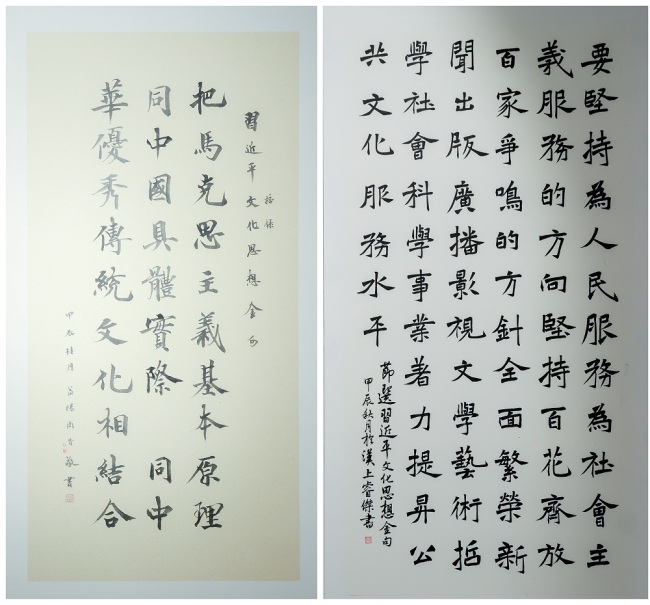 摘錄
習近平文化思想金句
把馬克思主義基本原理
同中國具體實際 同中
華優秀傳統文化相結合
甲辰桂月 敬書
要堅持為人民服務為社會主
義服務的方向堅持百花齊放
百家爭鳴的方針全面繁榮新
聞出版廣播影視文學藝術哲
學社會科學事業著力提昇公
共文化服務水平
節選習近平文化思想金句
甲辰秋月於漢上睿傑書